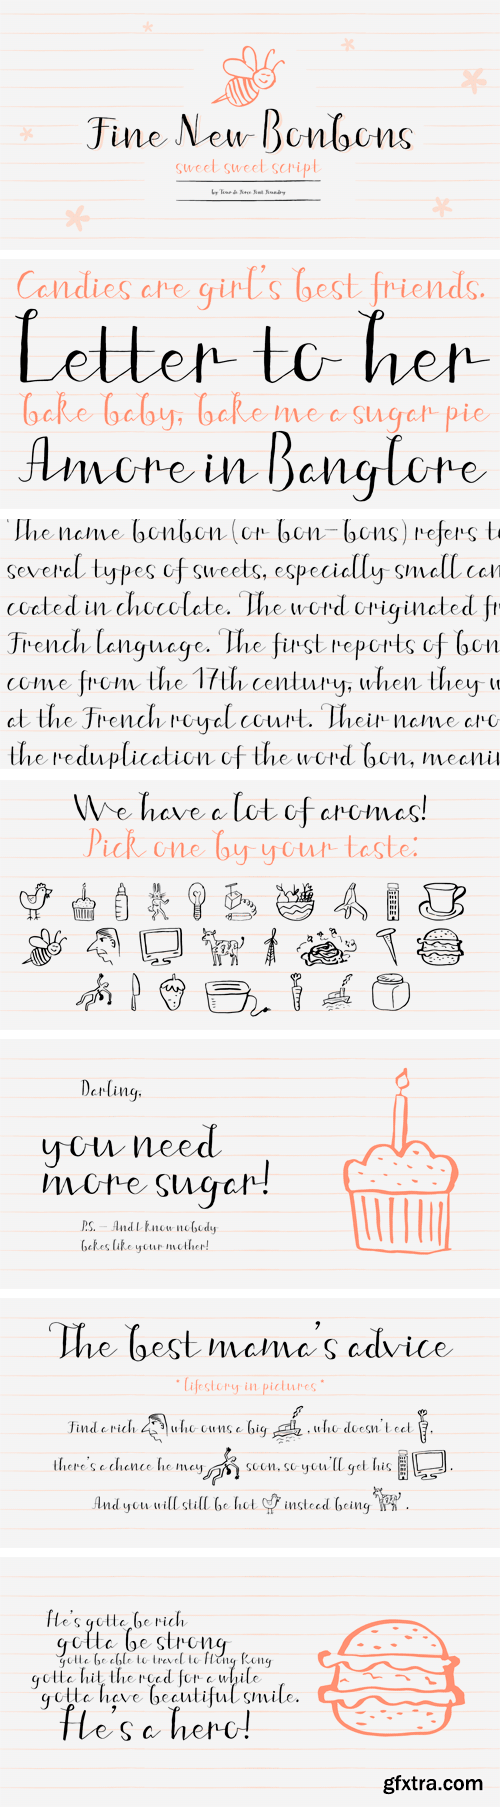 Fine New Bonbons
sweet sweet script
by Tour de Force Font Foundry
Candies are girl's best friends.
Letter to her
bake baby, bake me a sugar pie
Amore in Banglore
'The name bonbon (or bon-bons) refers to
several types of sweets, especially small can
coated in chocolate. The word originated fr
French language. The first reports of bon
come from the 17th century, when they w
at the French royal court. Their name aro
the reduplication of the word bon, meanin
We have a lot of aromas!
Pick one by your taste:
Darling,
you need
more sugar!
P.S. – And I know nobody
bakes like your mother!
The best mama's advice
*lifestory in pictures*
Find a rich who owns a big , who doesn't eat ,
there's a chance he may soon, so you'll get his .
And you will still be hot instead being .
He's gotta be rich
gotta be strong
gotta be able to travel to Hong Kong
gotta hit the road for a while
gotta have beautiful smile.
He's a hero!
gfxtra.com